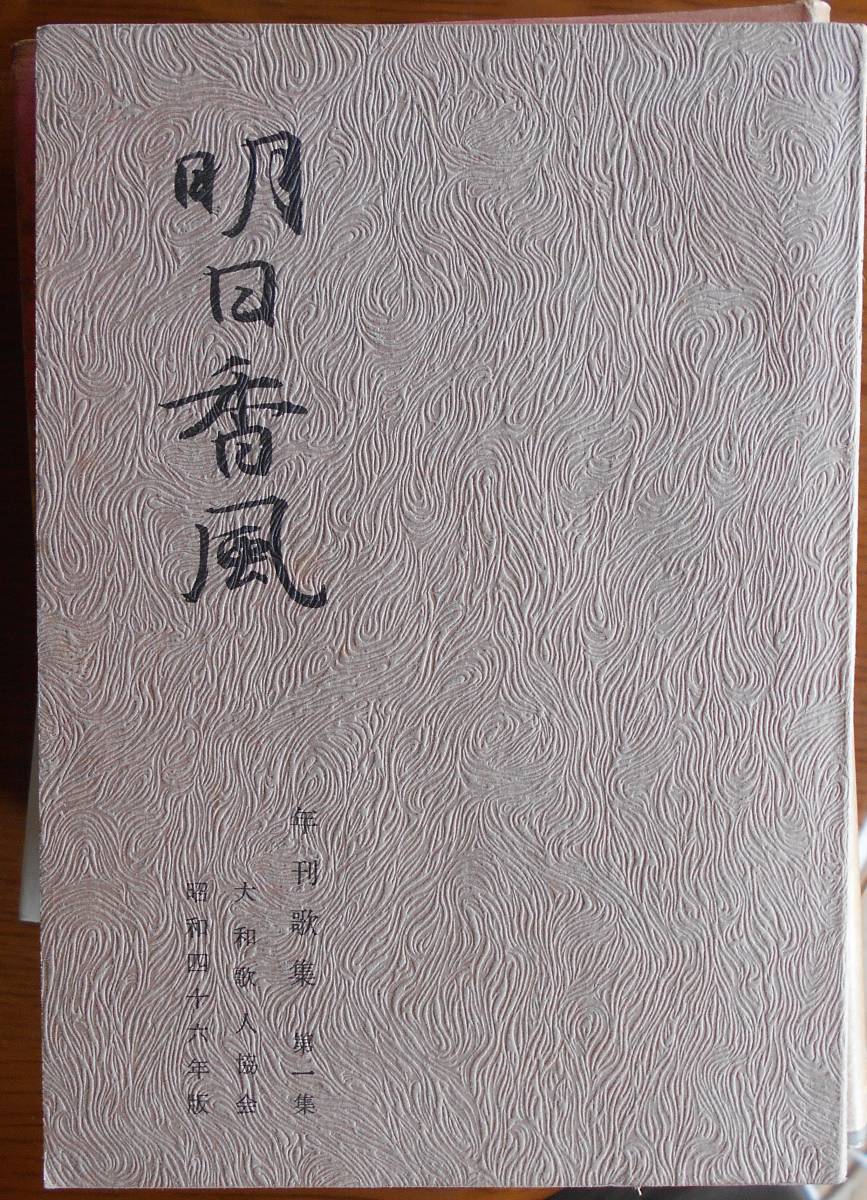 明日香風
年刊歌集 第一集
大和歌人協会
昭和四十六年版